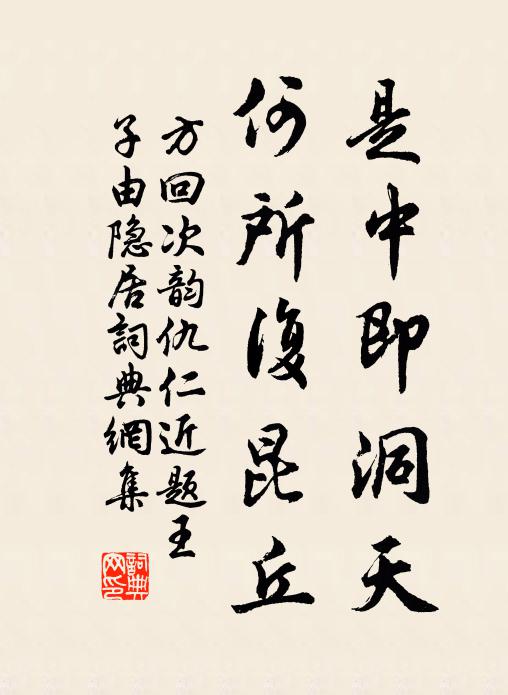 是中即洞天
何所復昆丘
方回次韵仇仁近题王
子由隐居詞典網集
詞典
网印